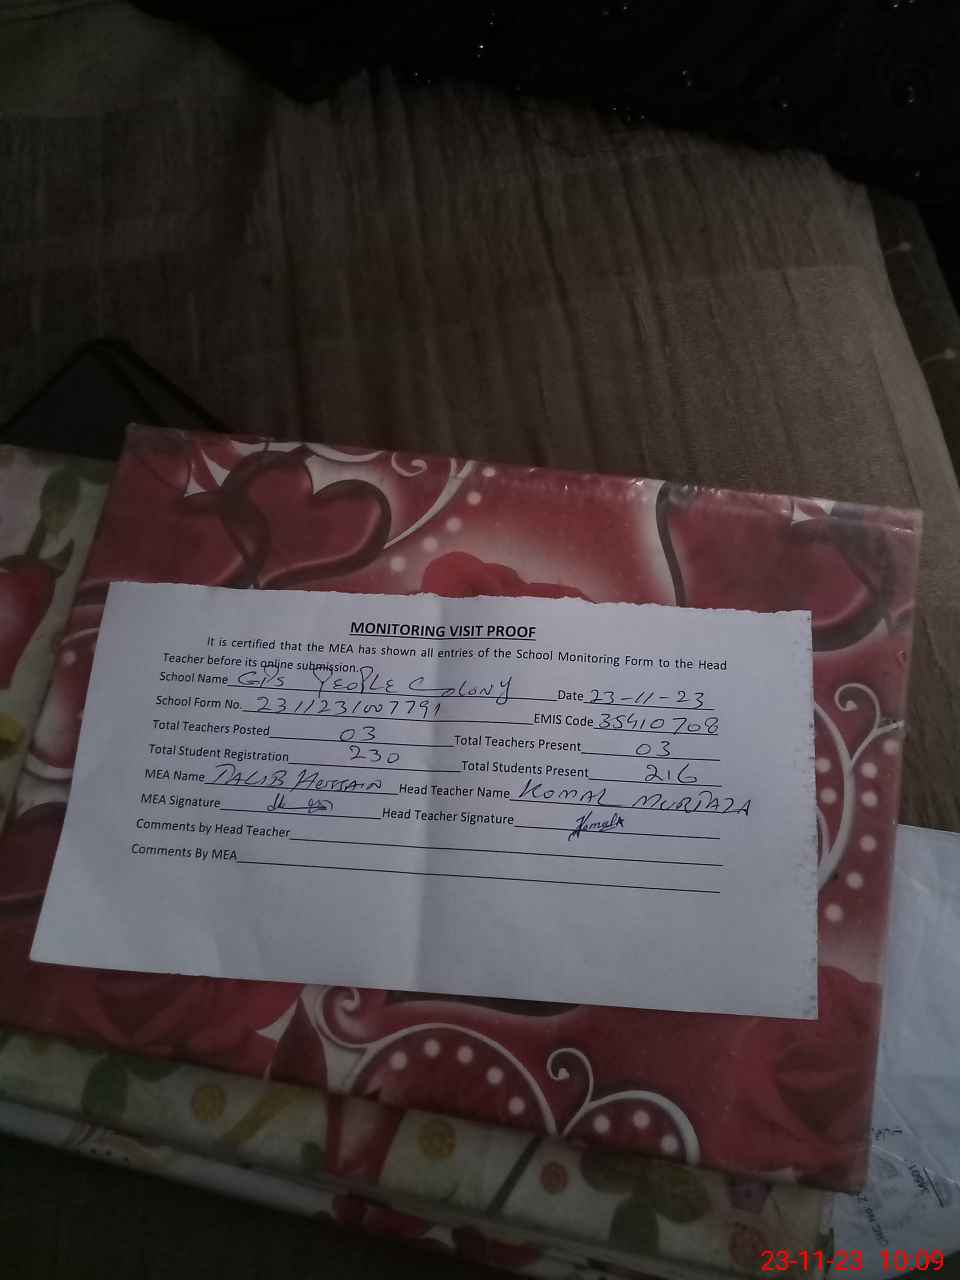 MONITORING VISIT PROOF
It is certified that the MEA has shown all entries of the School Monitoring Form to the Head
Teacher before its online submission.
School Name GPS PEOPLE COLONY Date 23-11-23
School Form No. 2311231007791 EMIS Code 35410708
Total Teachers Posted 03 Total Teachers Present 03
Total Student Registration 230 Total Students Present 216
MEA Name TALIB HUSSAIN Head Teacher Name KOMAL MURTAZA
MEA Signature Head Teacher Signature Komal
Comments by Head Teacher
Comments By MEA
23-11-23 10:09